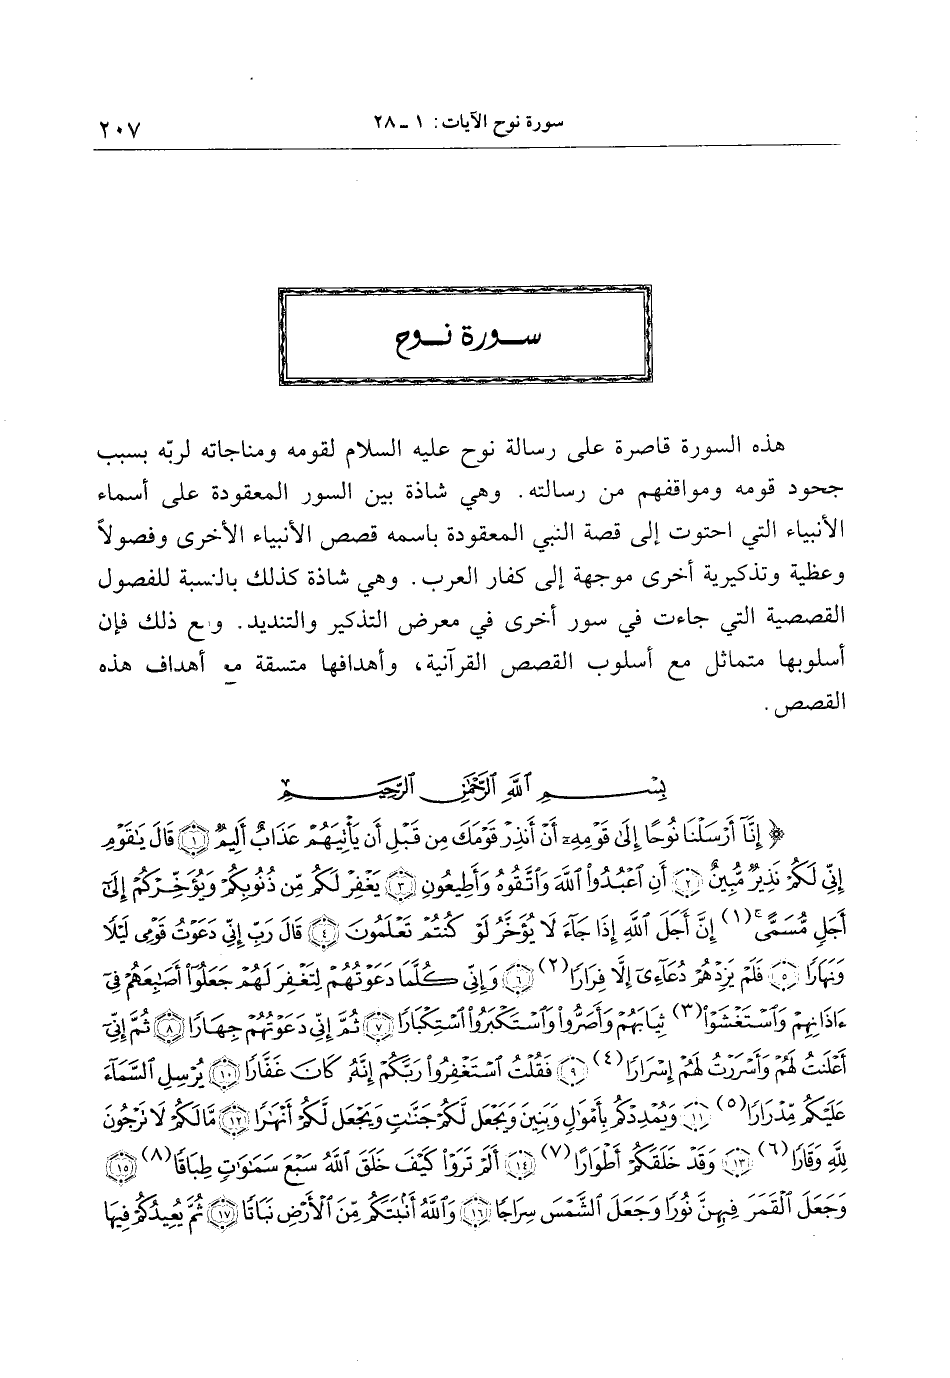 سورة نوح الآيات: ١ ـ ٢٨
٢٠٧
سورة نوح
هذه السورة قاصرة على رسالة نوح عليه السلام لقومه ومناجاته لربّه بسبب
جحود قومه ومواقفهم من رسالته. وهي شاذة بين السور المعقودة على أسماء
الأنبياء التي احتوت إلى قصة النبي المعقودة باسمه قصص الأنبياء الأخرى وفصولاً
وعظية وتذكيرية أخرى موجهة إلى كفار العرب. وهي شاذة كذلك بالنسبة للفصول
القصصية التي جاءت في سور أخرى في معرض التذكير والتنديد. ومع ذلك فإن
أسلوبها متماثل مع أسلوب القصص القرآنية، وأهدافها متسقة مع أهداف هذه
القصص.
بِسْمِ ٱللَّهِ ٱلرَّحْمَٰنِ ٱلرَّحِيمِ
﴿ إِنَّآ أَرْسَلْنَا نُوحًا إِلَىٰ قَوْمِهِۦٓ أَنْ أَنذِرْ قَوْمَكَ مِن قَبْلِ أَن يَأْتِيَهُمْ عَذَابٌ أَلِيمٌ ١ قَالَ يَٰقَوْمِ
إِنِّي لَكُمْ نَذِيرٌ مُّبِينٌ ٢ أَنِ ٱعْبُدُوا۟ ٱللَّهَ وَٱتَّقُوهُ وَأَطِيعُونِ ٣ يَغْفِرْ لَكُم مِّن ذُنُوبِكُمْ وَيُؤَخِّرْكُمْ إِلَىٰٓ
أَجَلٍ مُّسَمًّى ۚ(١) إِنَّ أَجَلَ ٱللَّهِ إِذَا جَآءَ لَا يُؤَخَّرُ لَوْ كُنتُمْ تَعْلَمُونَ ٤ قَالَ رَبِّ إِنِّي دَعَوْتُ قَوْمِى لَيْلًا
وَنَهَارًا ٥ فَلَمْ يَزِدْهُمْ دُعَآءِىٓ إِلَّا فِرَارًا(٢) ٦ وَإِنِّي كُلَّمَا دَعَوْتُهُمْ لِتَغْفِرَ لَهُمْ جَعَلُوٓا۟ أَصَٰبِعَهُمْ فِىٓ
ءَاذَانِهِمْ وَٱسْتَغْشَوْا۟(٣) ثِيَابَهُمْ وَأَصَرُّوا۟ وَٱسْتَكْبَرُوا۟ ٱسْتِكْبَارًا ٧ ثُمَّ إِنِّي دَعَوْتُهُمْ جِهَارًا ٨ ثُمَّ إِنِّىٓ
أَعْلَنتُ لَهُمْ وَأَسْرَرْتُ لَهُمْ إِسْرَارًا(٤) ٩ فَقُلْتُ ٱسْتَغْفِرُوا۟ رَبَّكُمْ إِنَّهُۥ كَانَ غَفَّارًا ١٠ يُرْسِلِ ٱلسَّمَآءَ
عَلَيْكُم مِّدْرَارًا(٥) ١١ وَيُمْدِدْكُم بِأَمْوَٰلٍ وَبَنِينَ وَيَجْعَل لَّكُمْ جَنَّٰتٍ وَيَجْعَل لَّكُمْ أَنْهَٰرًا ١٢ مَّا لَكُمْ لَا تَرْجُونَ
لِلَّهِ وَقَارًا(٦) ١٣ وَقَدْ خَلَقَكُمْ أَطْوَارًا(٧) ١٤ أَلَمْ تَرَوْا۟ كَيْفَ خَلَقَ ٱللَّهُ سَبْعَ سَمَٰوَٰتٍ طِبَاقًا(٨) ١٥
وَجَعَلَ ٱلْقَمَرَ فِيهِنَّ نُورًا وَجَعَلَ ٱلشَّمْسَ سِرَاجًا ١٦ وَٱللَّهُ أَنۢبَتَكُم مِّنَ ٱلْأَرْضِ نَبَاتًا ١٧ ثُمَّ يُعِيدُكُمْ فِيهَا